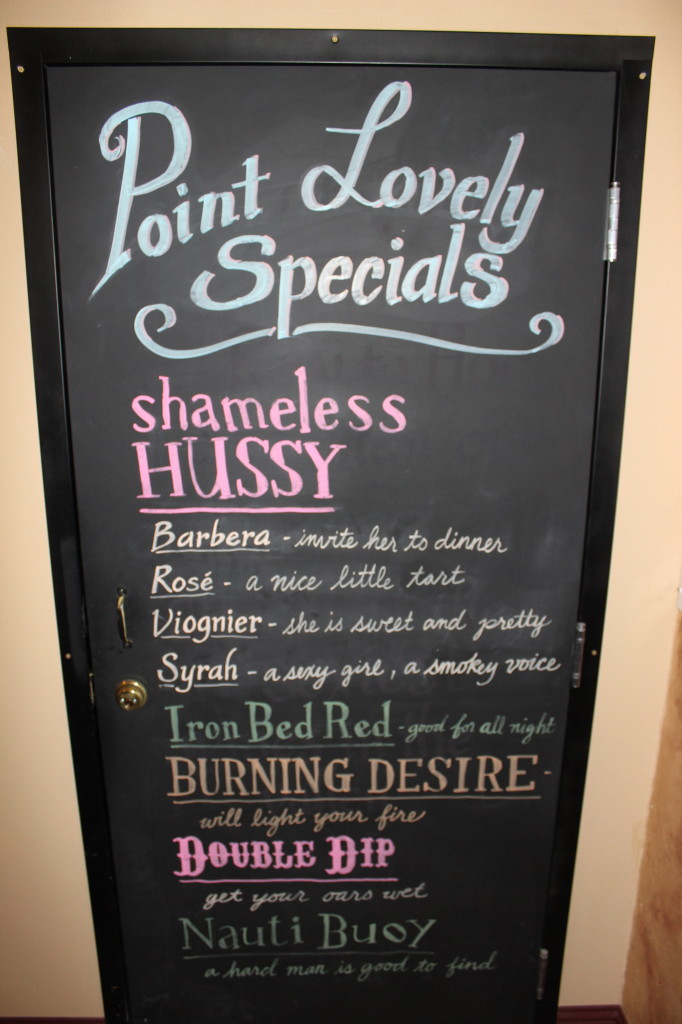 Point Lovely
Specials
shameless
HUSSY
Barbera - invite her to dinner
Rosé - a nice little tart
Viognier - she is sweet and pretty
Syrah - a sexy girl, a smokey voice
Iron Bed Red - good for all night
BURNING DESIRE -
will light your fire
DOUBLE DIP
get your oars wet
Nauti Buoy
a hard man is good to find